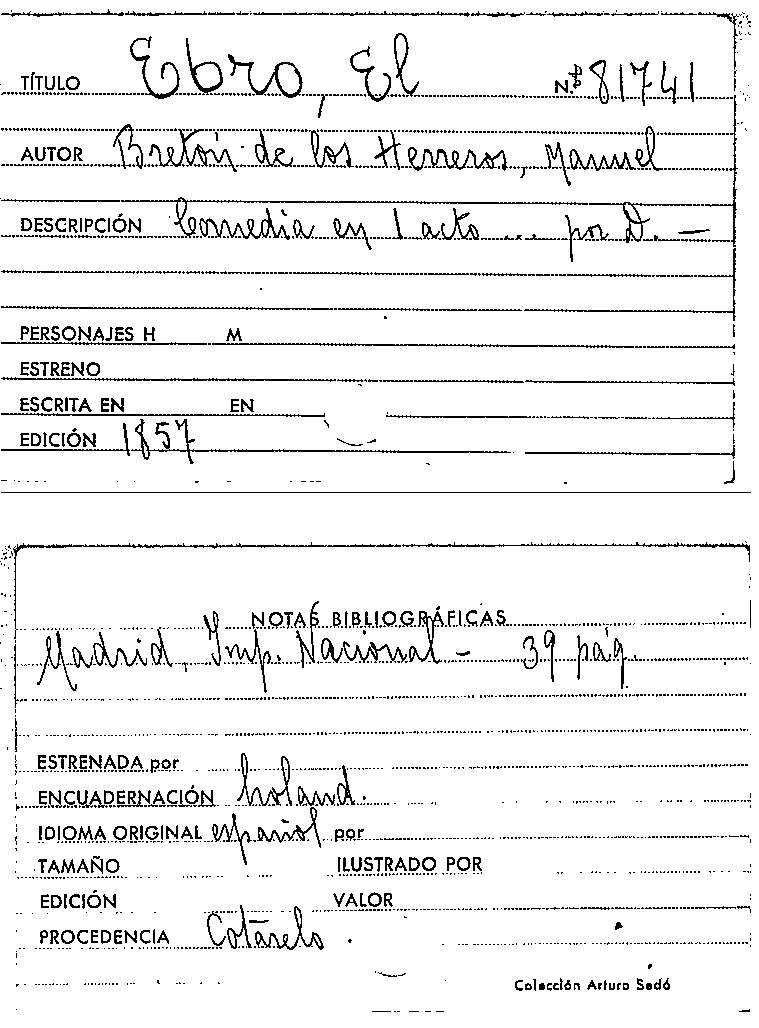 TÍTULO Ebro, El Nº 81741
AUTOR Bretón de los Herreros, Manuel
DESCRIPCIÓN Comedia en 1 acto ... por D. —
PERSONAJES H M
ESTRENO
ESCRITA EN EN
EDICIÓN 1857
NOTAS BIBLIOGRÁFICAS
Madrid, Imp. Nacional - 39 pág.
ESTRENADA por
ENCUADERNACIÓN holand.
IDIOMA ORIGINAL español por
TAMAÑO ILUSTRADO POR
EDICIÓN VALOR
PROCEDENCIA Cotarelo.
Colección Arturo Sedó